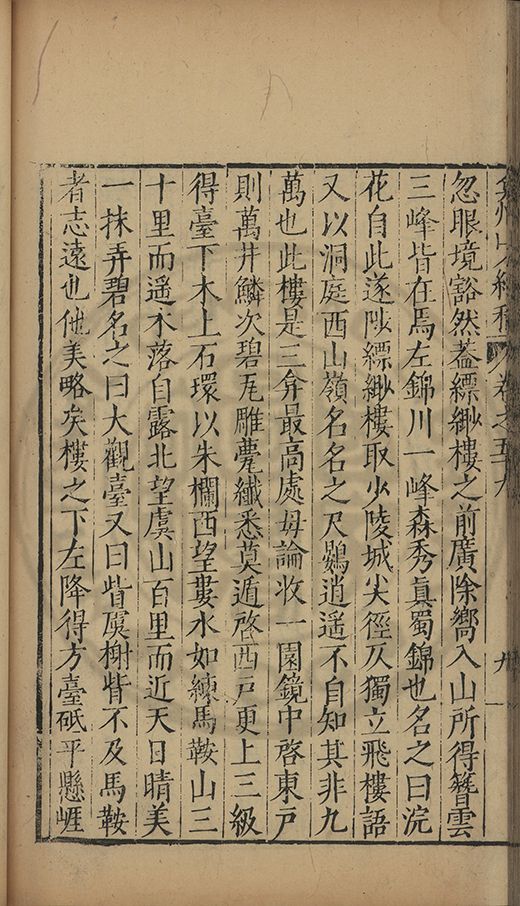 卷之五十九
九
忽眼境豁然葢縹緲樓之前廣除嚮入山所得簪雲
三峰皆在焉左錦川一峰森秀真蜀錦也名之曰浣
花自此遂陟縹緲樓取少陵城尖徑仄獨立飛樓語
又以洞庭西山嶺名名之尺鷃逍遥不自知其非九
萬也此樓是三弇最高處毋論收一園鏡中啓東戸
則萬井鱗次碧瓦雕甍纖悉莫遁啓西戸更上三級
得臺下木上石環以朱欄西望婁水如練馬鞍山三
十里而遥木落自露北望虞山百里而近天日晴美
一抹弄碧名之曰大觀臺又曰眥虞榭眥不及馬鞍
者志遠也他美略矣樓之下左降得方臺砥平懸崕